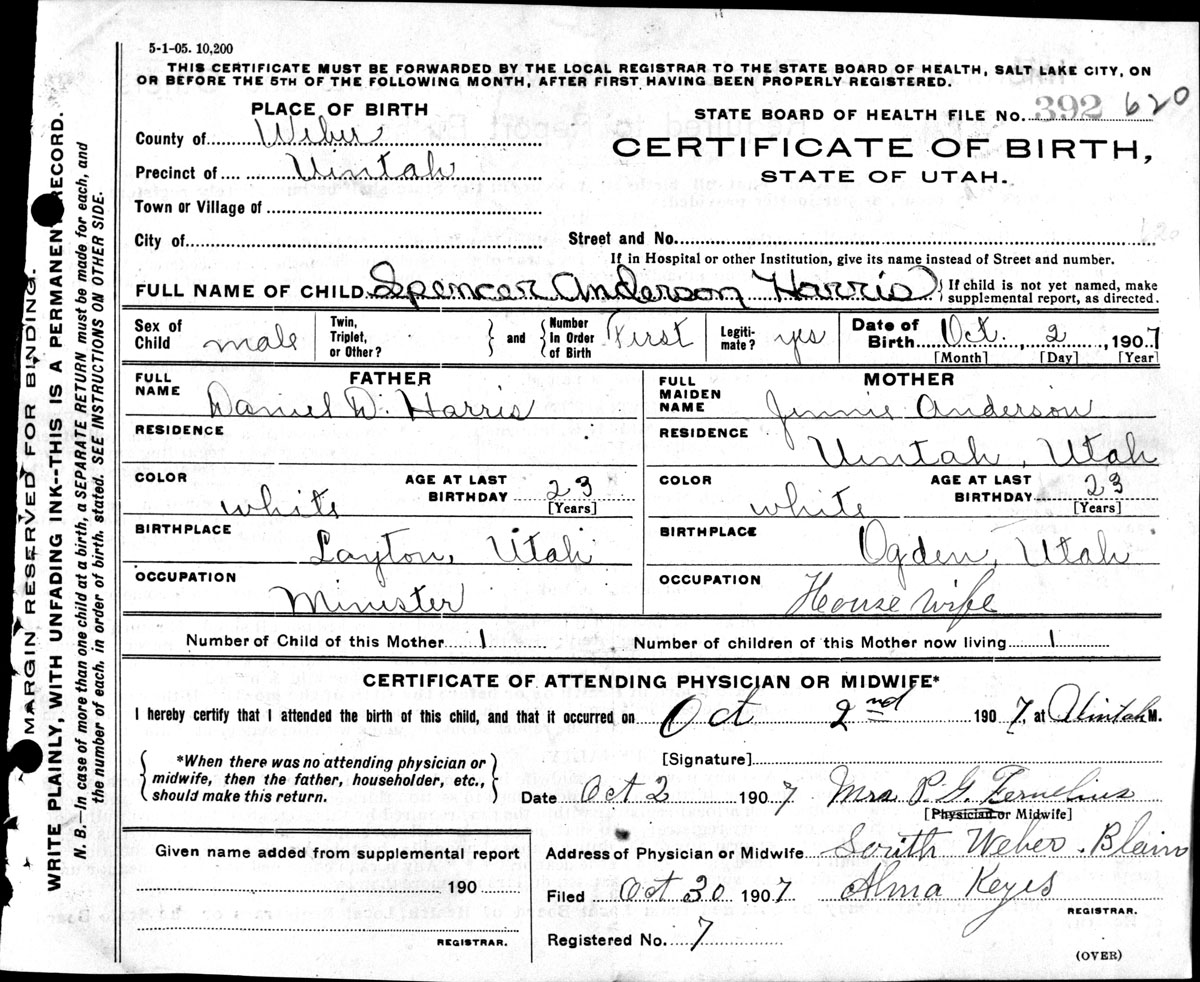 5-1-05. 10,200
THIS CERTIFICATE MUST BE FORWARDED BY THE LOCAL REGISTRAR TO THE STATE BOARD OF HEALTH, SALT LAKE CITY, ON
OR BEFORE THE 5TH OF THE FOLLOWING MONTH, AFTER FIRST HAVING BEEN PROPERLY REGISTERED.
PLACE OF BIRTH
County of Weber
Precinct of Uintah
Town or Village of
City of
STATE BOARD OF HEALTH FILE No. 392 620
CERTIFICATE OF BIRTH,
STATE OF UTAH.
Street and No.
If in Hospital or other Institution, give its name instead of Street and number.
FULL NAME OF CHILD Spencer Anderson Harris { If child is not yet named, make
supplemental report, as directed.
Sex of Child male
Twin, Triplet, or Other? } and { Number In Order of Birth First
Legitimate? yes
Date of Birth Oct. 2, 1907
[Month] [Day] [Year]
FATHER
FULL NAME Daniel D. Harris
RESIDENCE
COLOR white
AGE AT LAST BIRTHDAY 23
[Years]
BIRTHPLACE Layton, Utah
OCCUPATION Minister
MOTHER
FULL MAIDEN NAME Jennie Anderson
RESIDENCE Uintah, Utah
COLOR white
AGE AT LAST BIRTHDAY 23
[Years]
BIRTHPLACE Ogden, Utah
OCCUPATION House wife
Number of Child of this Mother 1 Number of children of this Mother now living 1
CERTIFICATE OF ATTENDING PHYSICIAN OR MIDWIFE*
I hereby certify that I attended the birth of this child, and that it occurred on Oct 2nd 1907, at Uintah M.
{ *When there was no attending physician or
midwife, then the father, householder, etc.,
should make this return. }
[Signature]
Date Oct 2 1907 Mrs P. G. Fernelius
[Physician or Midwife]
Address of Physician or Midwife South Weber
Filed Oct 30 1907 Alma Keyes
REGISTRAR.
Registered No. 7
(OVER)
Given name added from supplemental report
190
REGISTRAR.
MARGIN RESERVED FOR BINDING.
WRITE PLAINLY, WITH UNFADING INK--THIS IS A PERMANENT RECORD.
N. B.—In case of more than one child at a birth, a SEPARATE RETURN must be made for each, and
the number of each, in order of birth, stated. SEE INSTRUCTIONS ON OTHER SIDE.